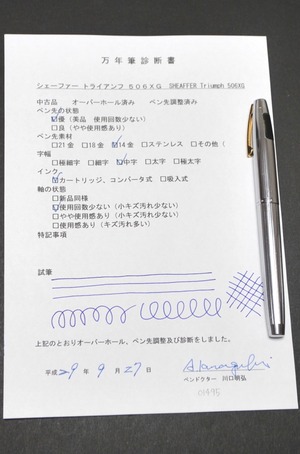 万年筆診断書
シェーファー トライアンフ 506XG SHEAFFER Triumph 506XG
中古品 オーバーホール済み ペン先調整済み
ペン先の状態
☑優（美品 使用回数少ない）
□良（やや使用感あり）
ペン先素材
□21金 □18金 ☑14金 □ステンレス □その他（
字幅
□極細字 □細字 ☑中字 □太字 □極太字
インク
☑カートリッジ、コンバータ式 □吸入式
軸の状態
□新品同様
☑使用回数少ない（小キズ汚れ少ない）
□やや使用感あり（小キズ汚れ少ない）
□使用感あり（キズ汚れ多い）
特記事項
試筆
上記のとおりオーバーホール、ペン先調整及び診断をしました。
平成 29 年 9 月 27 日
ペンドクター 川口明弘